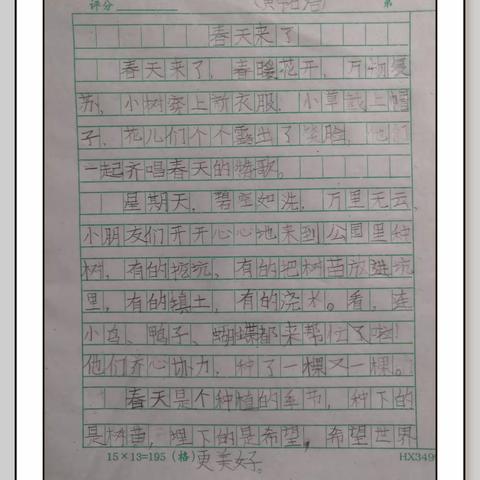 评分
第
春天来了
春天来了，春暖花开，万物复
苏，小树穿上新衣服，小草戴上帽
子，花儿们个个露出了笑脸，他们
一起齐唱春天的赞歌。
星期天，碧空如洗，万里无云，
小朋友们开开心心地来到公园里种
树，有的挖坑，有的把树苗放进坑
里，有的填土，有的浇水。看，连
小鸟、鸭子、蝴蝶都来帮忙了啦！
他们齐心协力，种了一棵又一棵。
春天是个种植的季节，种下的
是树苗，埋下的是希望，希望世界
更美好。
15×13=195（格）
HX349